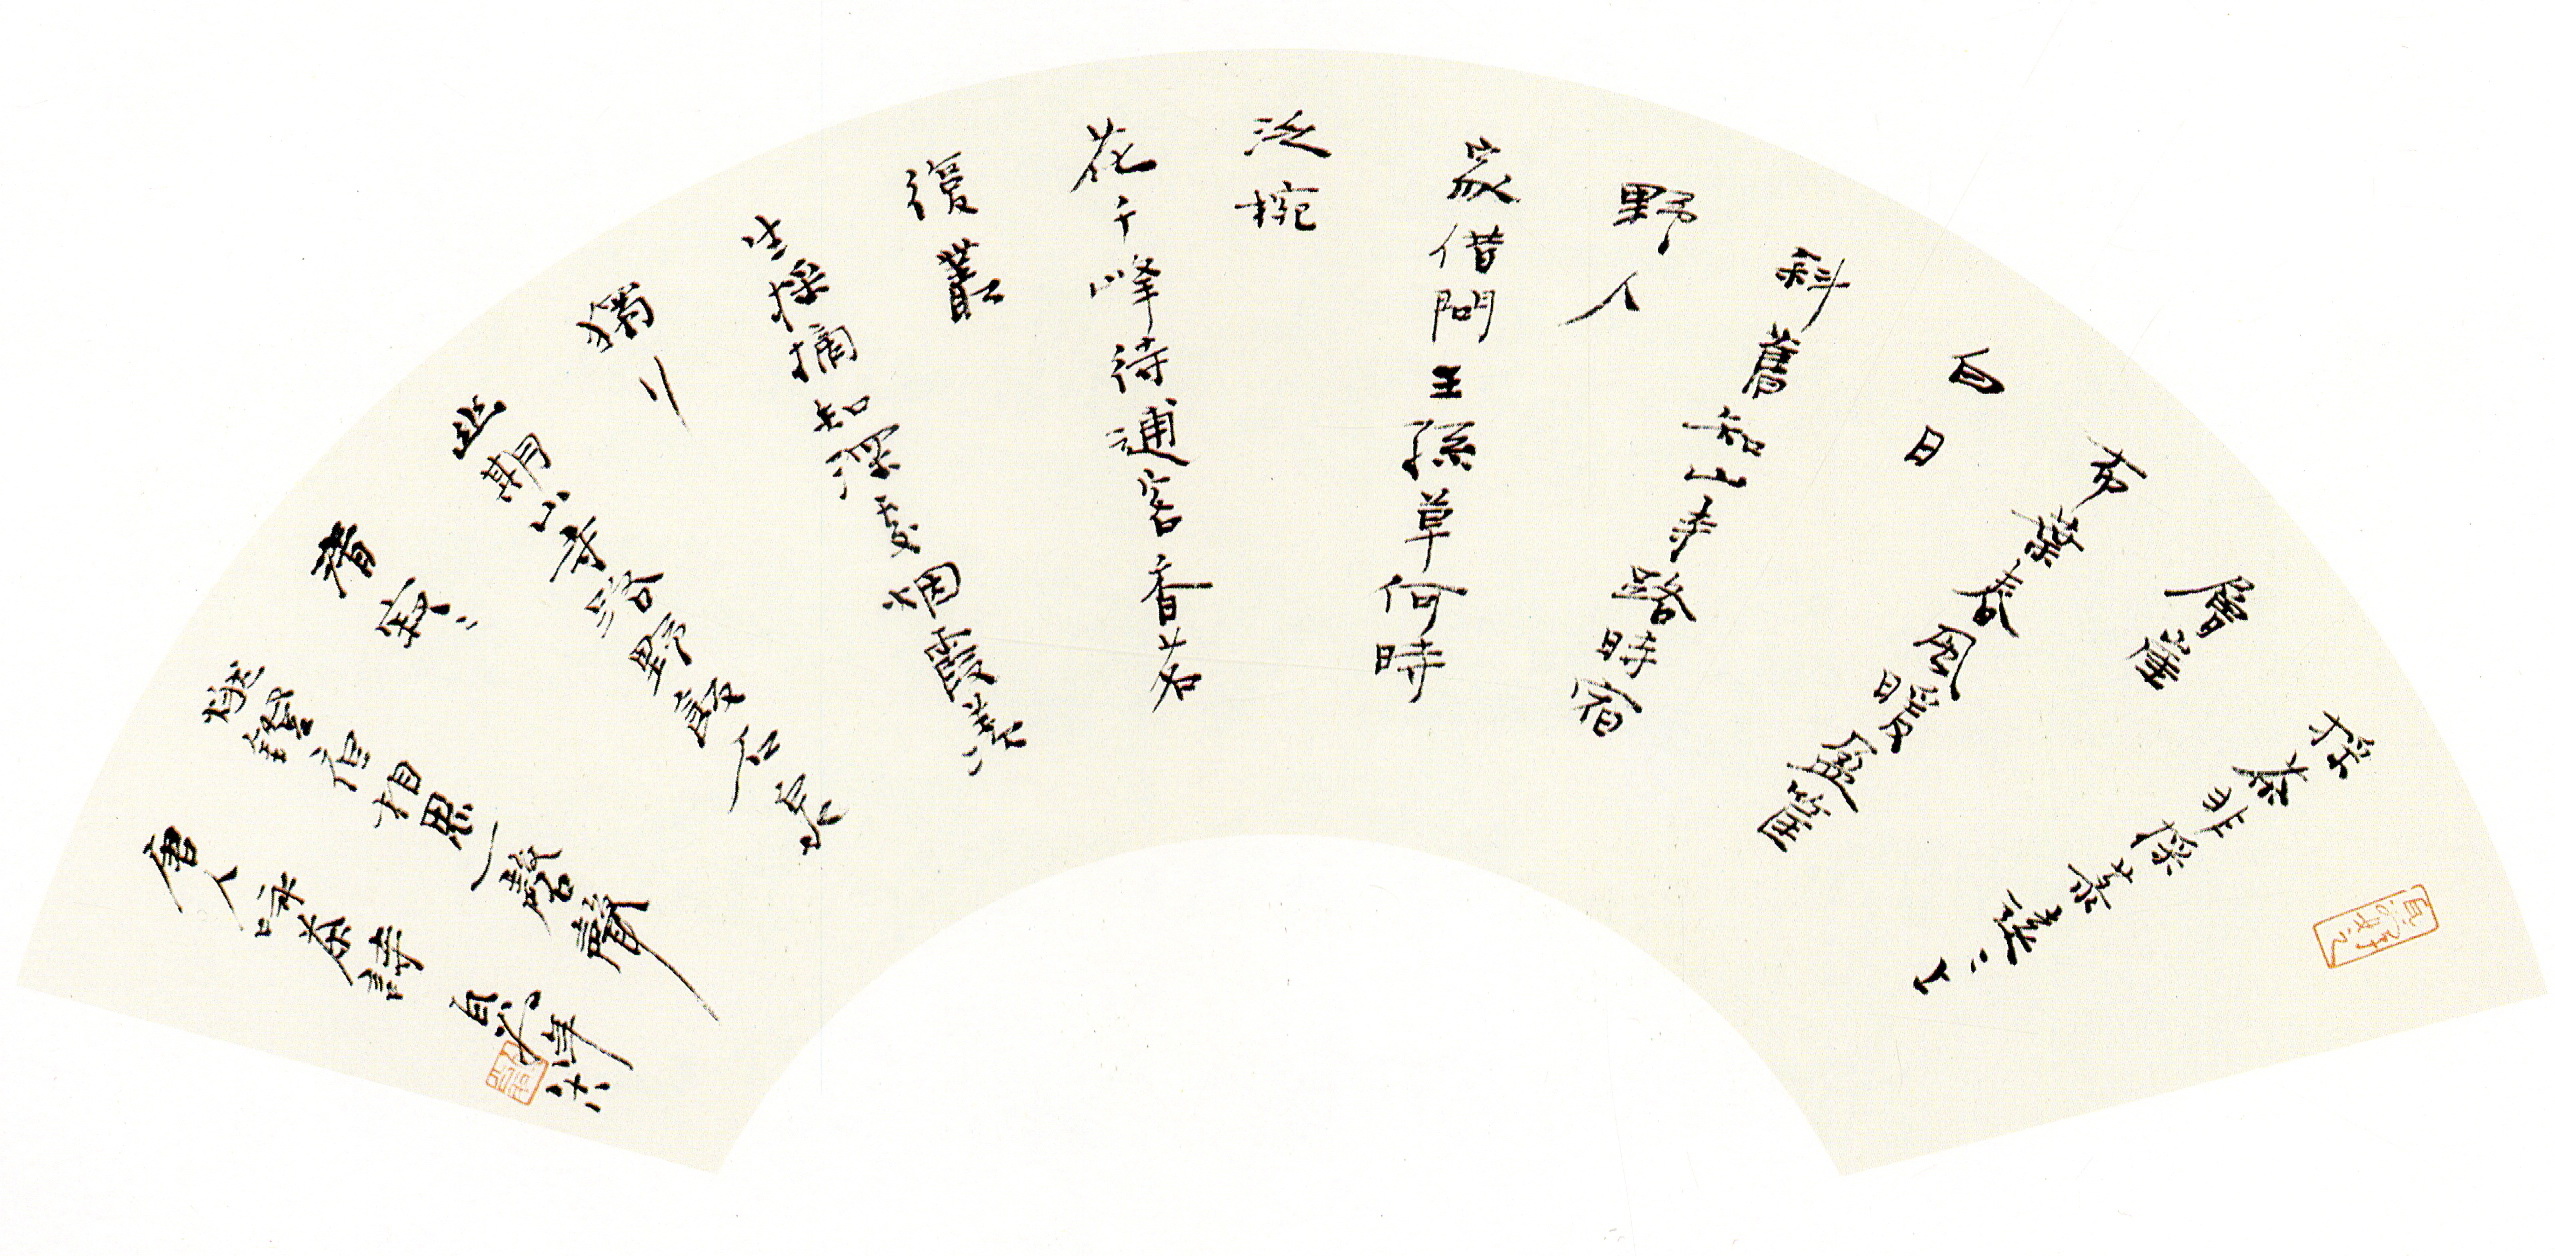 採茶非採菉遠〻上
層崖
布葉春風暖盈筐
白日
斜舊知山寺路時宿
野人
家借問王孫草何時
泛椀
花千峰待逋客香茗
復叢
生採摘知深處烟霞羨
獨行
幽期山寺路野飯石泉
清寂〻
燃燈夜相思一磬聲
唐人咏茶詩